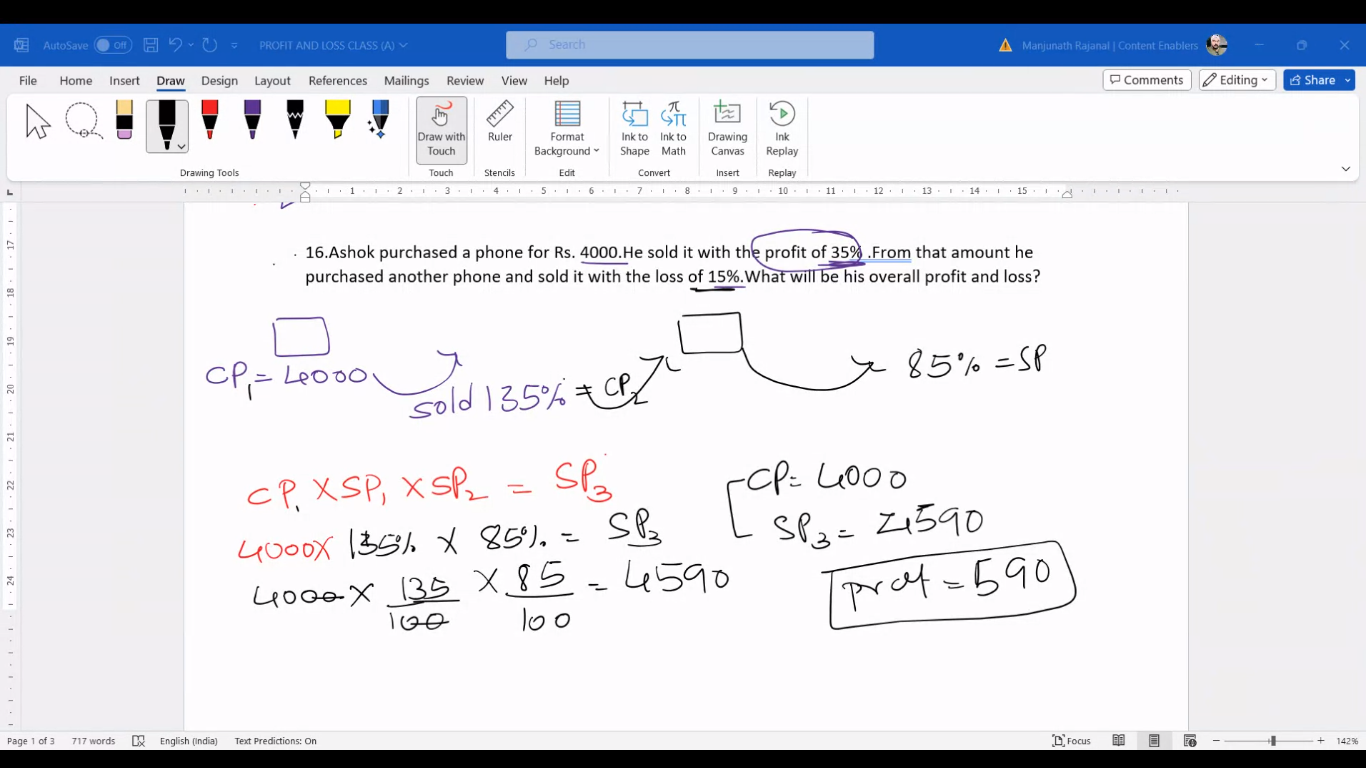 AutoSave Off PROFIT AND LOSS CLASS (A) Search Manjunath Rajanal | Content Enablers
File Home Insert Draw Design Layout References Mailings Review View Help Comments Editing Share
Draw with Touch Ruler Format Background Ink to Shape Ink to Math Drawing Canvas Ink Replay
Drawing Tools Touch Stencils Edit Convert Insert Replay
1 2 3 4 5 6 7 8 9 10 11 12 13 14 15
17
18
19
20
21
22
23
24
16.Ashok purchased a phone for Rs. 4000.He sold it with the profit of 35% .From that amount he
purchased another phone and sold it with the loss of 15%.What will be his overall profit and loss?
CP1 = 4000
sold 135% = CP2
85% = SP
CP1 X SP1 X SP2 = SP3
4000 X 135% X 85% = SP3
4000 X 135/100 X 85/100 = 4590
CP = 4000
SP3 = 4590
profit = 590
Page 1 of 3 717 words English (India) Text Predictions: On Focus 142%